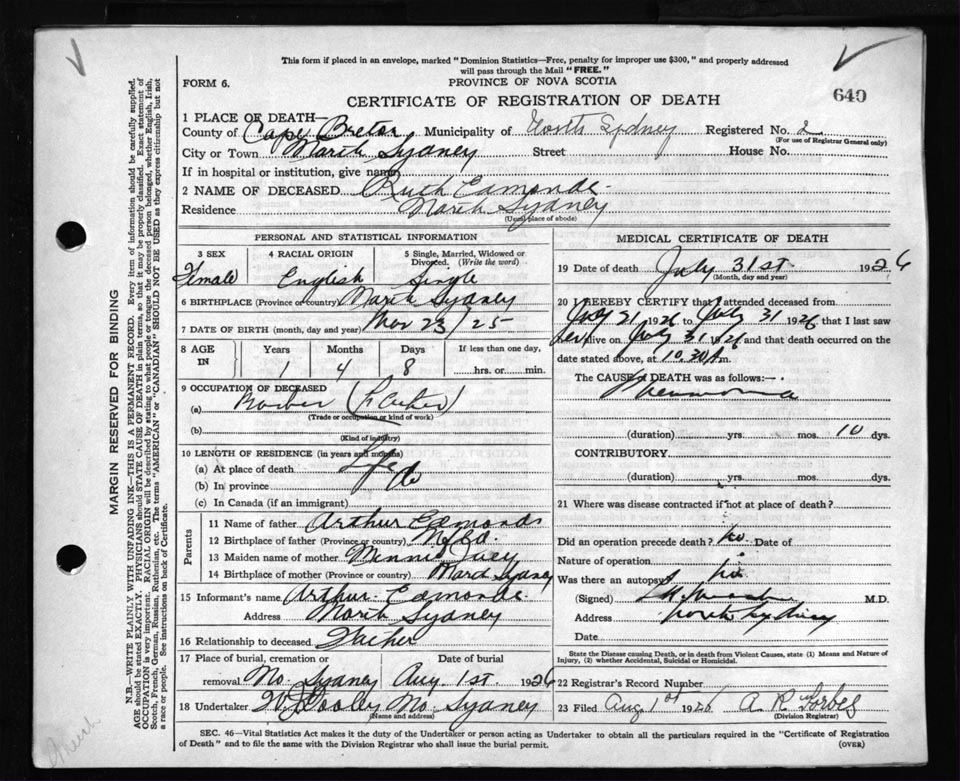 This form if placed in an envelope, marked "Dominion Statistics—Free, penalty for improper use $300," and properly addressed
will pass through the Mail "FREE."
FORM 6.
PROVINCE OF NOVA SCOTIA
CERTIFICATE OF REGISTRATION OF DEATH
640
1 PLACE OF DEATH—
County of Cape Breton Municipality of North Sydney Registered No. 2
(For use of Registrar General only)
City or Town North Sydney Street House No.
If in hospital or institution, give name
2 NAME OF DECEASED Ruth Edmonds
Residence North Sydney
(Usual place of abode)
PERSONAL AND STATISTICAL INFORMATION
3 SEX 4 RACIAL ORIGIN 5 Single, Married, Widowed or
Divorced. (Write the word)
Female English Single
6 BIRTHPLACE (Province or country) North Sydney
7 DATE OF BIRTH (month, day and year) Mar 23/25
8 AGE IN Years Months Days If less than one day,
1 4 8 hrs. or min.
9 OCCUPATION OF DECEASED
(a)
(Trade or occupation or kind of work)
(b)
(Kind of industry)
10 LENGTH OF RESIDENCE (in years and months)
(a) At place of death Life
(b) In province do
(c) In Canada (if an immigrant)
Parents
11 Name of father Arthur Edmonds
12 Birthplace of father (Province or country) Nfld.
13 Maiden name of mother Minnie Ivey
14 Birthplace of mother (Province or country) North Sydney
15 Informant's name Arthur Edmonds
Address North Sydney
16 Relationship to deceased Father
17 Place of burial, cremation or Date of burial
removal No. Sydney Aug. 1st. 1926
18 Undertaker No. Sydney
(Name and address)
MEDICAL CERTIFICATE OF DEATH
19 Date of death July 31st 1926
(Month, day and year)
20 I HEREBY CERTIFY that I attended deceased from
July 21 1926 to July 31 1926 that I last saw
her alive on July 31 1926 and that death occurred on the
date stated above, at 10.30
The CAUSE of DEATH was as follows:—
Pneumonia
(duration) yrs. mos. 10 dys.
CONTRIBUTORY
(duration) yrs. mos. dys.
21 Where was disease contracted if not at place of death?
Did an operation precede death? No. Date of
Nature of operation
Was there an autopsy no
(Signed) M.D.
Address North Sydney
Date
State the Disease causing Death, or in death from Violent Causes, state (1) Means and Nature of
Injury, (2) whether Accidental, Suicidal or Homicidal.
22 Registrar's Record Number
23 Filed Aug 1st 1926 A. R. Forbes
(Division Registrar)
SEC. 46—Vital Statistics Act makes it the duty of the Undertaker or person acting as Undertaker to obtain all the particulars required in the "Certificate of Registration
of Death" and to file the same with the Division Registrar who shall issue the burial permit.
(OVER)
MARGIN RESERVED FOR BINDING
N.B.—WRITE PLAINLY WITH UNFADING INK—THIS IS A PERMANENT RECORD. Every item of information should be carefully supplied.
AGE should be stated EXACTLY. PHYSICIANS should STATE CAUSE OF DEATH in plain terms, so that it may be properly classified. Exact statement of
OCCUPATION is very important. RACIAL ORIGIN will be described by stating to what people or tongue the deceased person belonged, whether English, Irish,
Scotch, French, German, Russian, Ruthenian, etc. The terms "AMERICAN" or "CANADIAN" SHOULD NOT BE USED as they express citizenship but not
a race or people. See instructions on back of Certificate.